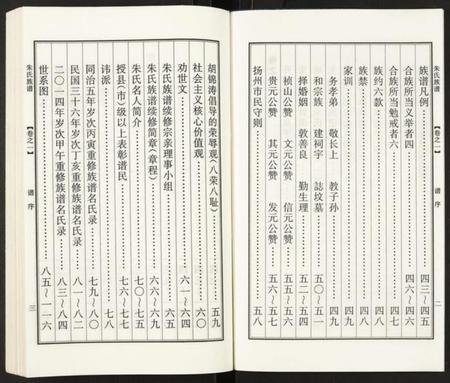 朱氏族谱 【卷之一】 谱序 二
族谱凡例……四三～四五
合族所当义举者四……四六～四六
合族所当勉戒者六……四七
族约六款……四八
族禁……四八
家训……四九
务孝弟 敬长上 教子孙……四九
和宗族 建祠宇 誌坟墓……五〇～五一
择婚姻 敦善良 勤生理
桢山公赞 文元公赞 信元公赞……五二～五五
贵元公赞 其元公赞 发元公赞……五六～五七
扬州市民守则……五八
胡锦涛倡举的荣辱观(八荣八耻)……五九
社会主义核心价值观……六〇
劝世文……六一～六四
朱氏族谱续修宗亲理事小组……六五
朱氏族谱续修简章(章程)……六六～六九
朱氏名人简介……七〇～七五
授县(市)级以上表彰谱民……七六～七七
讳派……七八
同治五年岁次丙寅重修族谱名氏录……七九～八〇
民国三十六年岁次丁亥重修族谱名氏录……八一～八二
二〇一四年岁次甲午重修族谱名氏录……八三～八四
世系图……八五～一二六
朱氏族谱 【卷之一】 谱序 三